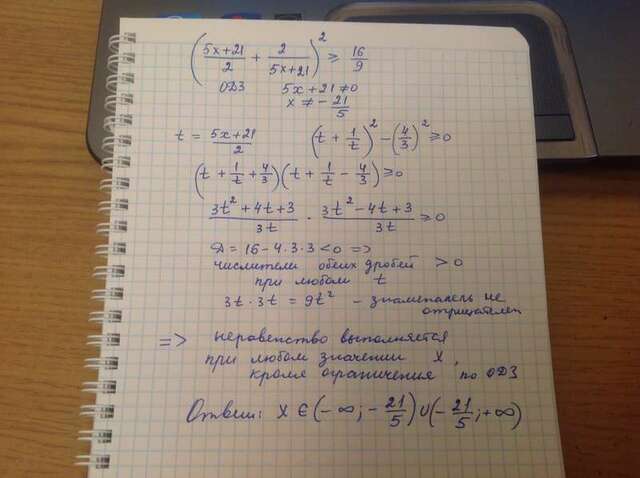 ((5x+21)/2 + 2/(5x+21))² ≥ 16/9
ОДЗ 5x+21≠0
x ≠ -21/5
t = (5x+21)/2 (t + 1/t)² - (4/3)² ≥ 0
(t + 1/t + 4/3)(t + 1/t - 4/3) ≥ 0
(3t² + 4t + 3)/3t · (3t² - 4t + 3)/3t ≥ 0
D = 16 - 4·3·3 < 0 =>
числители обеих дробей > 0
при любом t
3t · 3t = 9t² - знаменатель не
отрицателен
=> неравенство выполняется
при любом значении x,
кроме ограничения по ОДЗ
Ответ: x ∈ (-∞; -21/5) ∪ (-21/5; +∞)